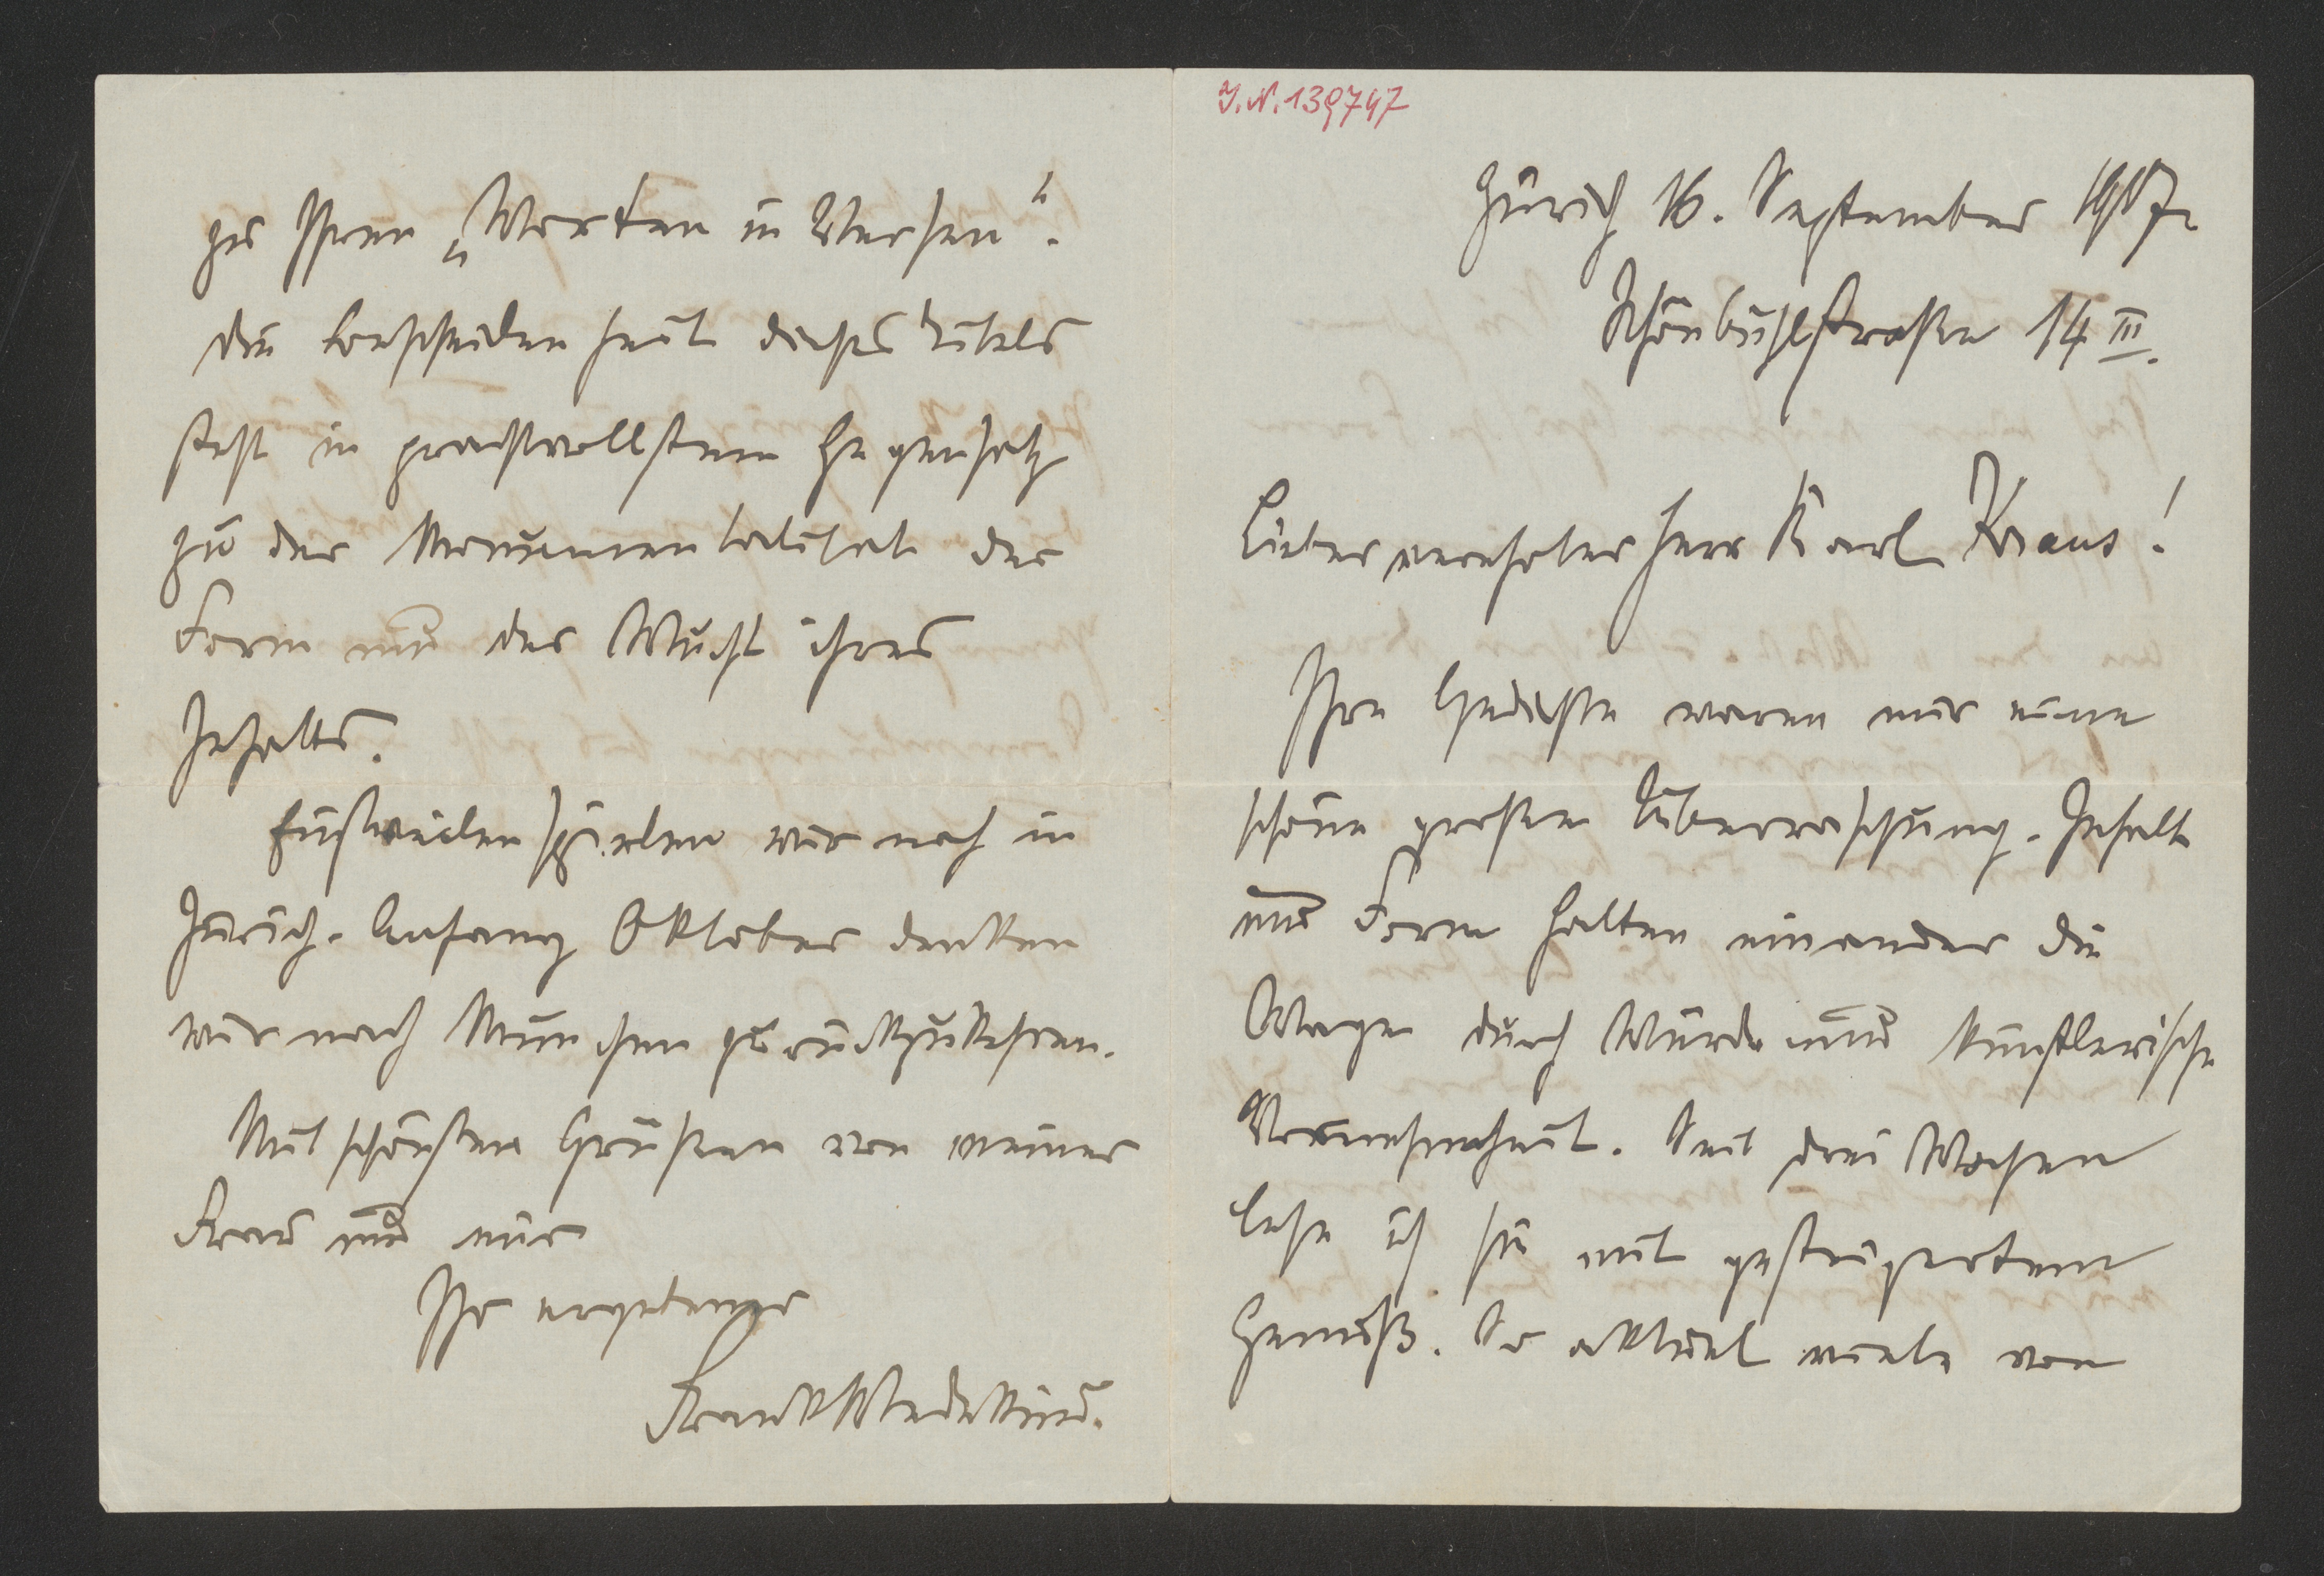 J.N. 139747
Zürich 16. September 1917.
Schönbühlstraße 14 III.
Lieber verehrter Herr Karl Kraus!
Ihre Gedichte waren mir eine
schöne große Überraschung. Inhalt
und Form halten einander die
Wage durch Würde und künstlerische
Vornehmheit. Seit drei Wochen
lese ich sie mit gesteigertem
Genuß. So aktuel viele von
zu Ihren „Worten in Versen“.
Die Bescheidenheit dieses Titels
steht in prachtvollstem Gegensatz
zu der Monumentalität der
Form und der Wucht ihres
Inhalts.
Einstweilen spielen wir noch in
Zürich. Anfang Oktober denken
wir nach München zurückzukehren.
Mit schönsten Grüßen von meiner
Frau und mir
Ihr ergebener
Frank Wedekind.